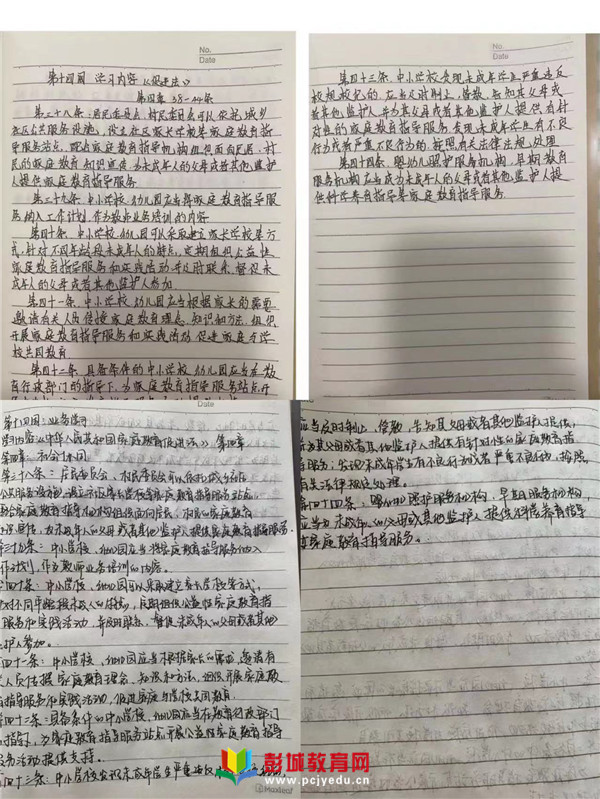 No.
Date
第十四周 学习内容《促进法》
第四章 38-44条
第三十八条、居民委员会、村民委员会可以依托城乡
社区公共服务设施,设立社区家长学校等家庭教育指
导服务站点,配合家庭教育指导机构组织面向居民、村
民的家庭教育知识宣传,为未成年人的父母或者其他监护
人提供家庭教育指导服务
第三十九条、中小学校、幼儿园应当将家庭教育指导服
务纳入工作计划,作为教师业务培训的内容
第四十条、中小学校、幼儿园可以采取建立家长学校等方
式,针对不同年龄段未成年人的特点,定期组织公益性
家庭教育指导服务和实践活动,并及时联系、督促未
成年人的父母或者其他监护人参加
第四十一条、中小学校、幼儿园应当根据家长的需要
邀请有关人员传授家庭教育理念、知识和方法,组织
开展家庭教育指导服务和实践活动,促进家庭与学
校共同教育
第四十二条、具备条件的中小学校、幼儿园应当在教
育行政部门的指导下,为家庭教育指导服务站点开
No.
Date
第四十三条、中小学校发现未成年学生严重违反
校规校纪的,应当及时制止、管教,告知其父母或
者其他监护人,并为其父母或者其他监护人提供有针
对性的家庭教育指导服务,发现未成年学生有不良
行为或者严重不良行为的,按照有关法律法规处理
第四十四条、婴幼儿照护服务机构、早期教育
服务机构应当为未成年人的父母或者其他监护人提
供科学养育指导等家庭教育指导服务
Date
第十四周:业务学习
学习内容:《中华人民共和国家庭教育促进法》第四章
第四章:社会协同
第三十八条:居民委员会、村民委员会可以依托城乡社区
公共服务设施,设立社区家长学校等家庭教育指导服务站点,
配合家庭教育指导机构组织面向居民、村民的家庭教育
知识宣传,为未成年人的父母或者其他监护人提供家庭教育指导服务
第三十九条:中小学校、幼儿园应当将家庭教育指导服务纳入
工作计划,作为教师业务培训的内容。
第四十条:中小学校、幼儿园可以采取建立家长学校等方式,
针对不同年龄段未成年人的特点,定期组织公益性家庭教育指
服务和实践活动,并及时联系、督促未成年人的父母或者其他
监护人参加。
四十一条:中小学校、幼儿园应当根据家长的需求,邀请有
人员传授家庭教育理念、知识和方法,组织开展家庭教
指导服务和实践活动,促进家庭与学校共同教育
四十二条:具备条件的中小学校、幼儿园应当在教育行政部门
指导下,为家庭教育指导服务站点开展公益性家庭教育指导
服务活动提供支持。
四十三条:中小学校发现未成年学生严重违反
应当及时制止、管教,告知其父母或者其他监护人,
为其父母或者其他监护人提供有针对性的家庭教育指
导服务;发现未成年学生有不良行为或者严重不良行为,按照
有关法律规定处理。
第四十四条:婴幼儿照护服务机构、早期服务机构,
应当为未成年人的父母或其他监护人提供科学养育指导
等家庭教育指导服务。
彭城教育网
www.pcjyedu.cn
Maxleaf